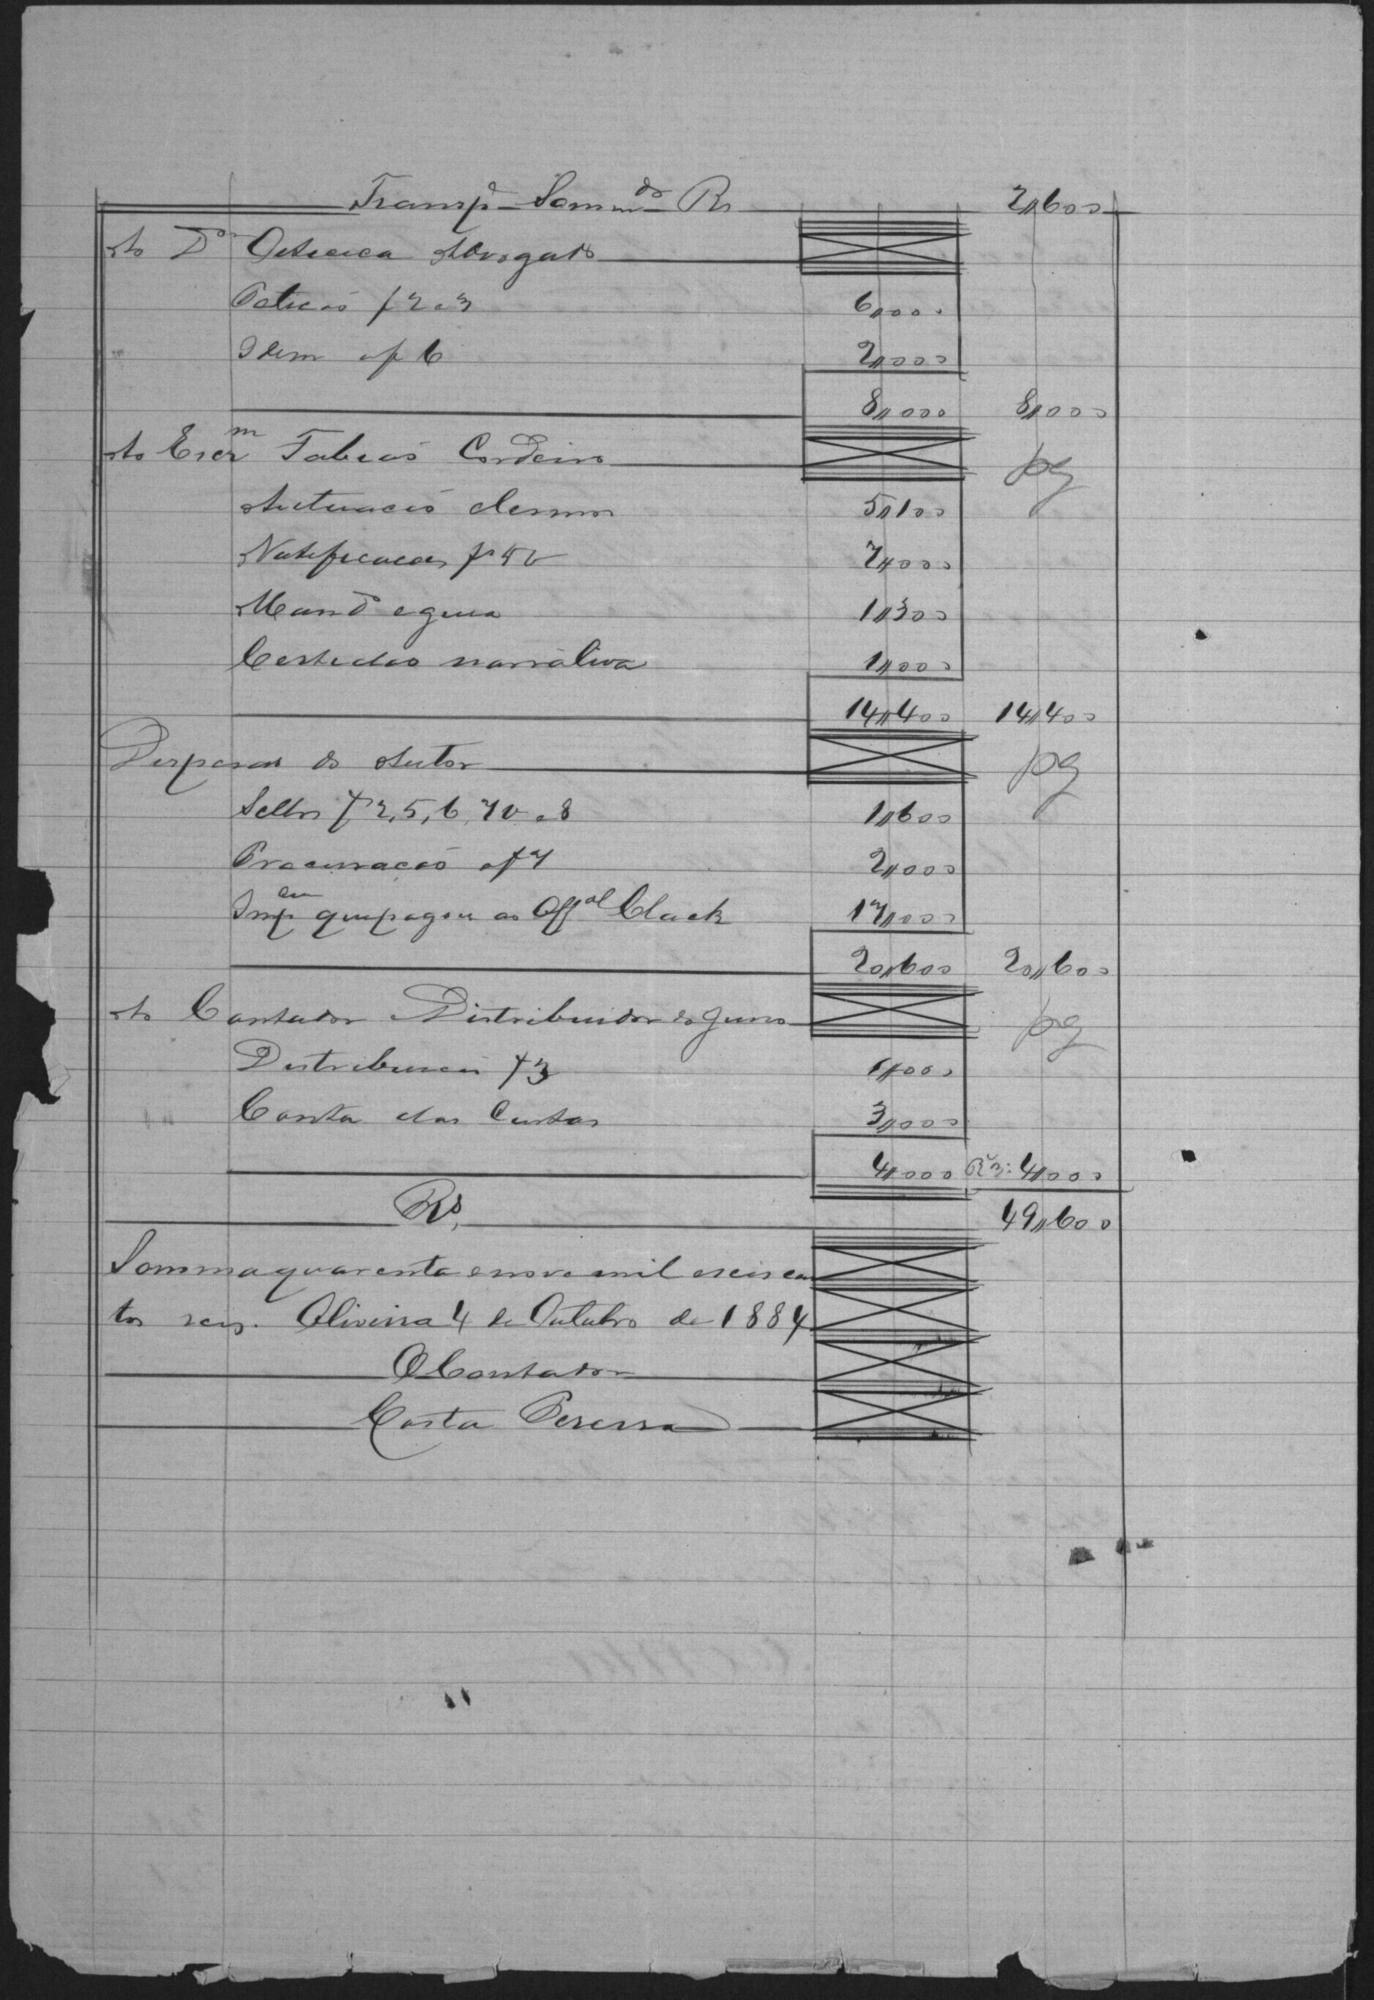 Transp.e Somm.do Rs 2,600
Ao Dor Oiticica Advogado
Peticáo f 2 e 3 6,000
Idem af 6 2,000
8,000 8,000
Ao Escr.m Fabiáo Cordeiro pg
Autuacáo e termos 5,100
Notificacáo f 4 v 7,000
Mand.o e guia 1,300
Certidáo narrativa 1,000
14,400 14,400
Despesas do Autor pg
Sellos f 2, 5, 6, 7 v e 8 1,600
Procuracáo af 7 2,000
Imp.cia que pagou ao Off.al Clack 17,000
20,600 20,600
Ao Contador Distribuidor do Juiso pg
Distribuicáo f 3 1,000
Conta das Custas 3,000
4,000 Rs: 4,000
Rs. 49,600
Somma quarenta e nove mil e seis cen
tos reis. Oliveira 4 de Outubro de 1884
O Contador
Costa Pereira